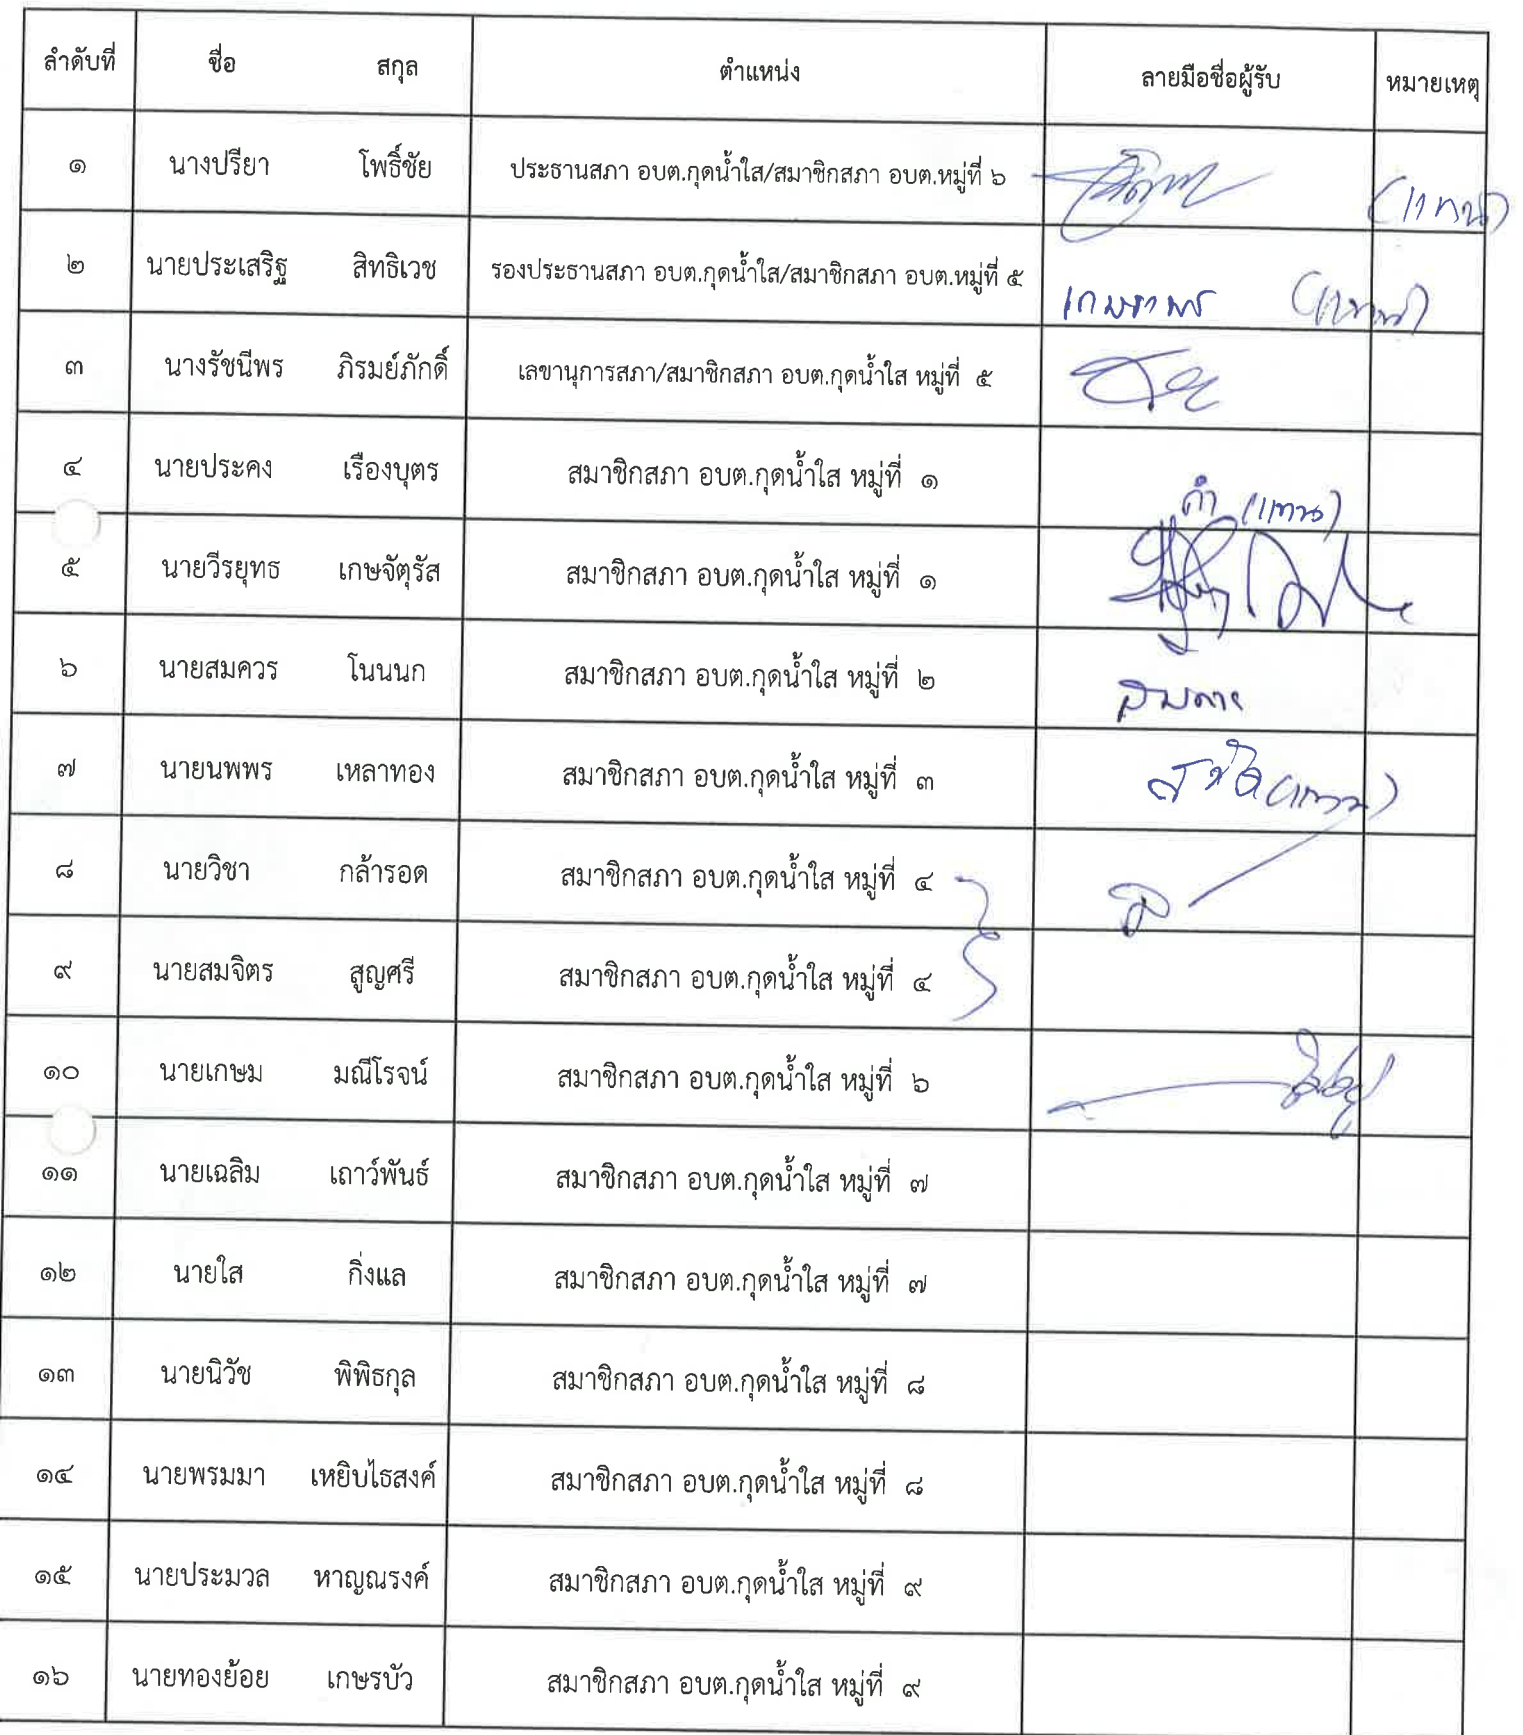 ลำดับที่ ชื่อ สกุล ตำแหน่ง ลายมือชื่อผู้รับ หมายเหตุ
๑ นางปรียา โพธิ์ชัย ประธานสภา อบต.กุดน้ำใส/สมาชิกสภา อบต.หมู่ที่ ๖ (แทน)
๒ นายประเสริฐ สิทธิเวช รองประธานสภา อบต.กุดน้ำใส/สมาชิกสภา อบต.หมู่ที่ ๕ (แทน)
๓ นางรัชนีพร ภิรมย์ภักดิ์ เลขานุการสภา/สมาชิกสภา อบต.กุดน้ำใส หมู่ที่ ๕
๔ นายประคง เรืองบุตร สมาชิกสภา อบต.กุดน้ำใส หมู่ที่ ๑ คำ (แทน)
๕ นายวีรยุทธ เกษจัตุรัส สมาชิกสภา อบต.กุดน้ำใส หมู่ที่ ๑
๖ นายสมควร โนนนก สมาชิกสภา อบต.กุดน้ำใส หมู่ที่ ๒
๗ นายนพพร เหลาทอง สมาชิกสภา อบต.กุดน้ำใส หมู่ที่ ๓ (แทน)
๘ นายวิชา กล้ารอด สมาชิกสภา อบต.กุดน้ำใส หมู่ที่ ๔
๙ นายสมจิตร สูญศรี สมาชิกสภา อบต.กุดน้ำใส หมู่ที่ ๔
๑๐ นายเกษม มณีโรจน์ สมาชิกสภา อบต.กุดน้ำใส หมู่ที่ ๖
๑๑ นายเฉลิม เถาว์พันธ์ สมาชิกสภา อบต.กุดน้ำใส หมู่ที่ ๗
๑๒ นายใส กิ่งแล สมาชิกสภา อบต.กุดน้ำใส หมู่ที่ ๗
๑๓ นายนิวัช พิพิธกุล สมาชิกสภา อบต.กุดน้ำใส หมู่ที่ ๘
๑๔ นายพรมมา เหยิบไธสงค์ สมาชิกสภา อบต.กุดน้ำใส หมู่ที่ ๘
๑๕ นายประมวล หาญณรงค์ สมาชิกสภา อบต.กุดน้ำใส หมู่ที่ ๙
๑๖ นายทองย้อย เกษรบัว สมาชิกสภา อบต.กุดน้ำใส หมู่ที่ ๙